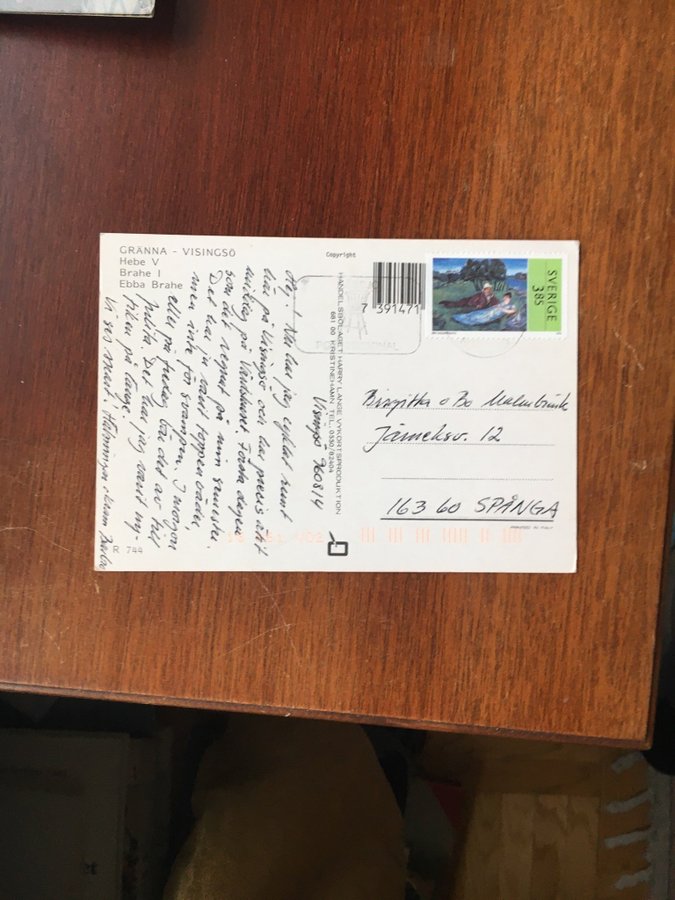 GRÄNNA - VISINGSÖ
Hebe V
Brahe I
Ebba Brahe
Copyright
7 391471
SVERIGE
3,85
HANDELSBOLAGET HARRY LANGE VYKORTSPRODUKTION
681 00 KRISTINEHAMN TEL. 0550/82404
Visingsö 960814
Hej! Nu har jag cyklat runt
här på Visingsö och har precis ätit
middag på Värdshuset. Första dagen
som det regnat på min semester.
Det har ju varit toppen väder,
men inte för svampen. I morgon
eller på fredag bär det av till
Det har jag varit ny-
fiken på länge.
Vi ses snart.
Birgitta o Bo
Järneksv. 12
163 60 SPÅNGA
PRINTED IN ITALY
R 744